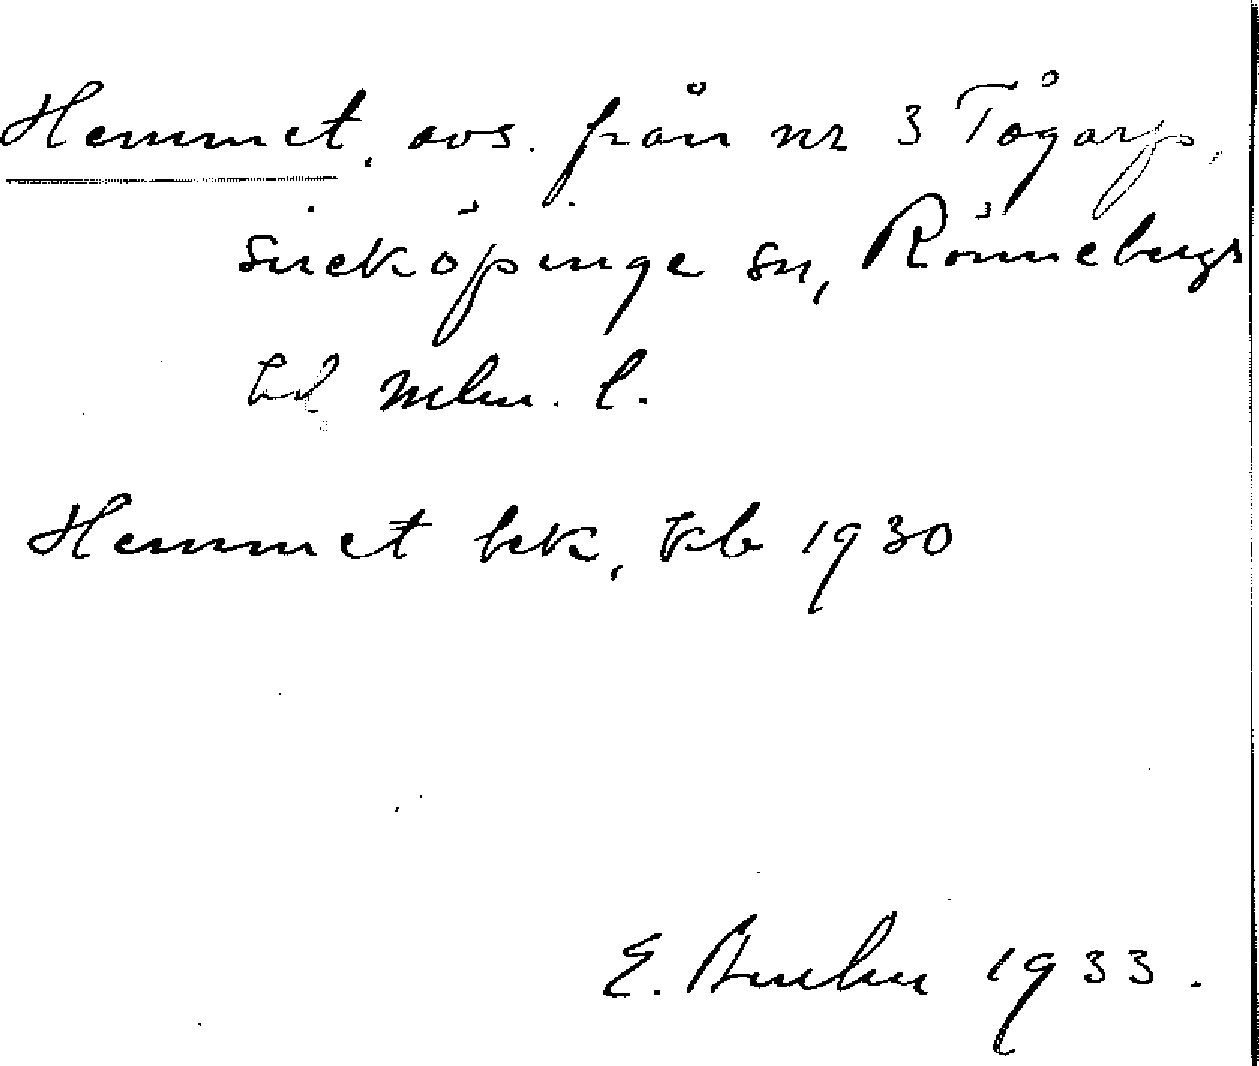 Hemmet, avs. från nr 3 Tågarp,
Sireköpinge sn, Rönnebergs
hd Mlm. l.
Hemmet bek, Kb 1930
E. 1933.